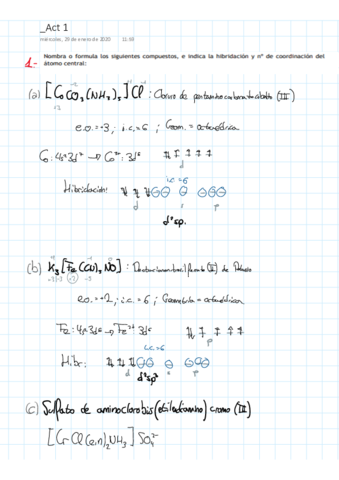 _Act 1
miércoles, 29 de enero de 2020 11:48
1- Nombra o formula los siguientes compuestos, e indica la hibridación y nº de coordinación del
átomo central:
(a) [CoCO₃(NH₃)₅]Cl : Cloruro de (III)
e.o.=+3 ; i.c.=6 ; Geom.= octaédrica
Co: 4s²3d⁷ → Co³⁺: 3d⁶
d
i.c=6
Hibridación:
d s p
d²sp³
(b) K₃[Fe(CN)₅NO] : (II) de Potasio
e.o.=+2 ; i.c.=6 ; Geometría = octaédrica
Fe: 4s²3d⁶ → Fe²⁺ 3d⁶
i.c=6
Hibr:
d s p
d²sp³
(c) Sulfato de aminoclorobis(etilendiamino) cromo (III)
[CrCl(en)₂NH₃]SO₄